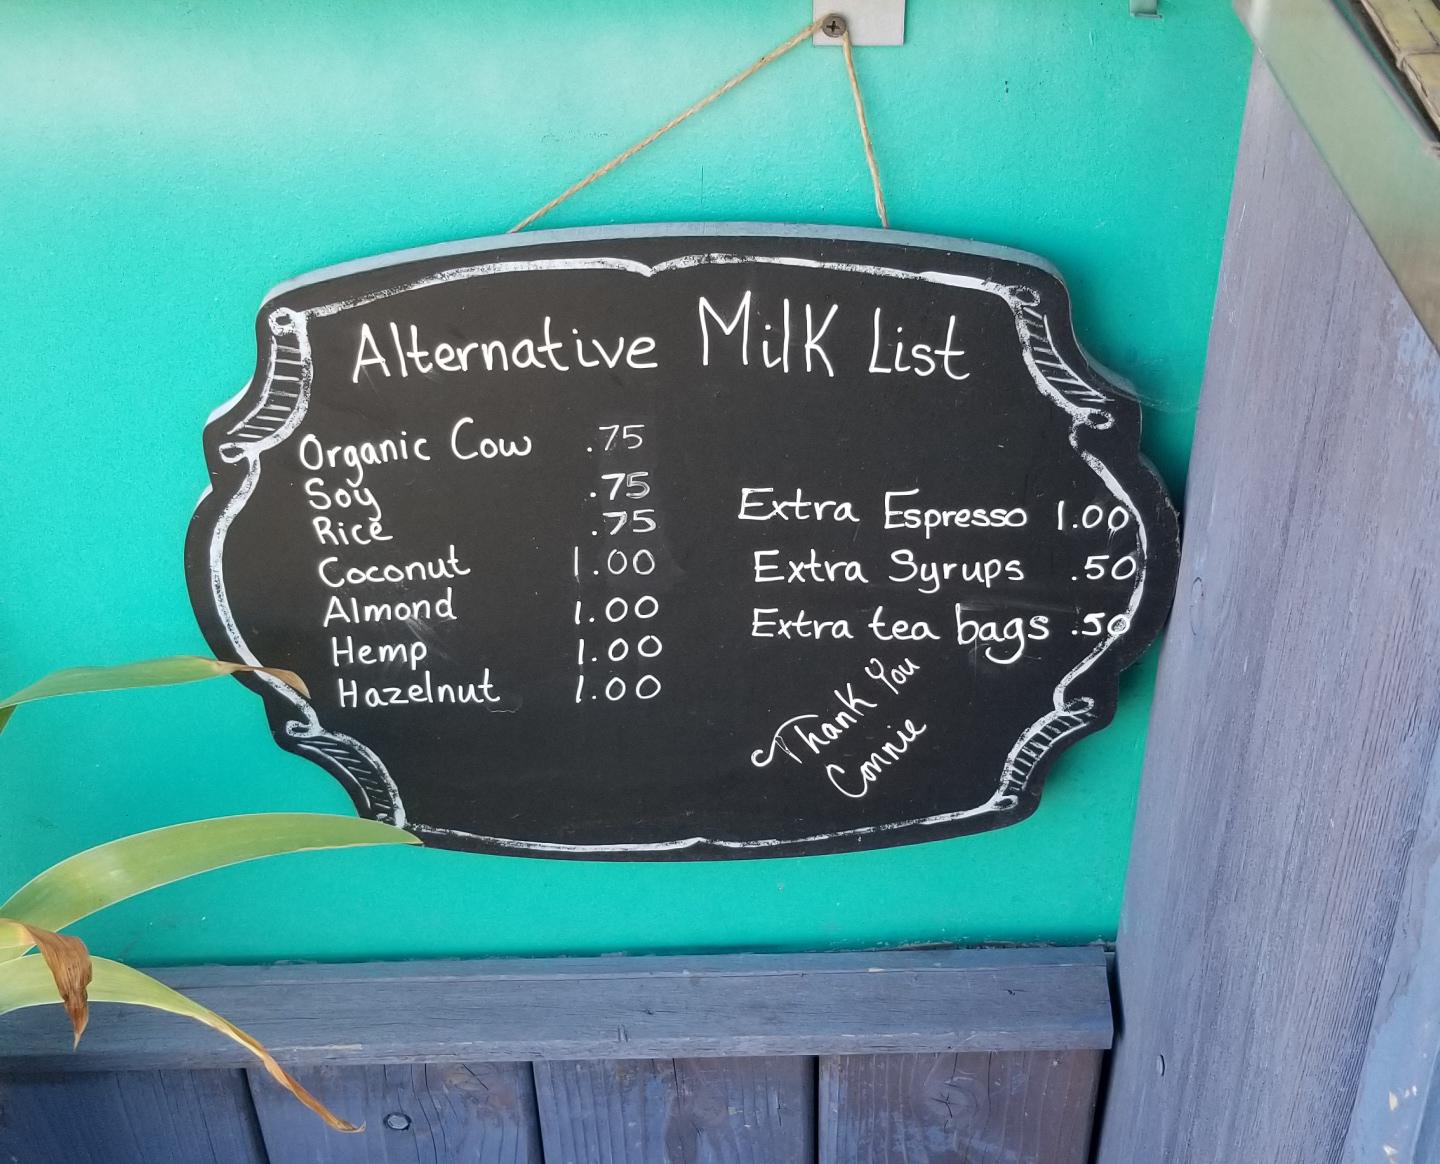 Alternative Milk List
Organic Cow .75
Soy .75
Rice .75
Coconut 1.00
Almond 1.00
Hemp 1.00
Hazelnut 1.00
Extra Espresso 1.00
Extra Syrups .50
Extra tea bags .50
Thank You
Connie